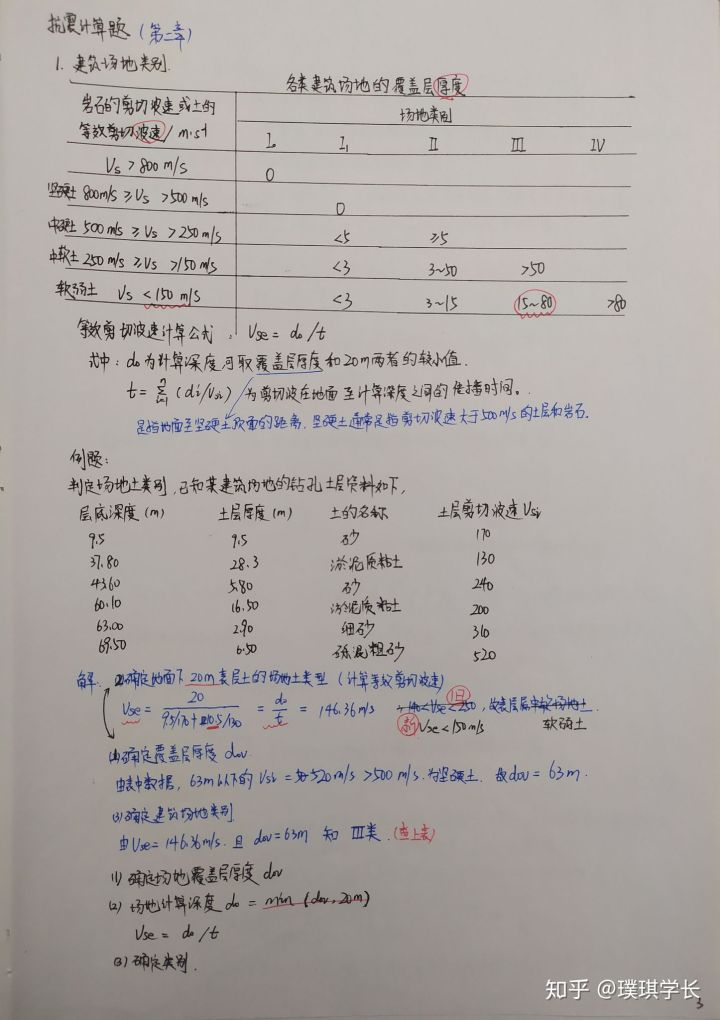 抗震计算题 (第二章)
1. 建筑场地类别.
各类建筑场地的覆盖层厚度
岩石的剪切波速或土的 场地类别
等效剪切波速/m·s⁻¹ I₀ I₁ II III IV
Vs > 800 m/s 0
坚硬土 800m/s ≥ Vs > 500 m/s 0
中硬土 500 m/s ≥ Vs > 250 m/s <5 ≥5
中软土 250 m/s ≥ Vs >150 m/s <3 3~50 >50
软弱土 Vs < 150 m/s <3 3~15 15~80 >80
等效剪切波速计算公式: Vse = do / t
式中: do 为计算深度,可取覆盖层厚度和20m两者的较小值.
t = Σ(di/Vsi) 为剪切波在地面至计算深度之间的传播时间.
是指地面至坚硬土顶面的距离. 坚硬土通常是指剪切波速大于500m/s的土层和岩石.
例题:
判定场地土类别, 已知某建筑场地的钻孔土层资料如下,
层底深度(m) 土层厚度(m) 土的名称 土层剪切波速 Vsi
9.5 9.5 砂 170
37.80 28.3 淤泥质粘土 130
43.60 5.80 砂 240
60.10 16.50 淤泥质粘土 200
63.00 2.90 细砂 310
69.50 6.50 砾混粗砂 520
解: (2)确定地面下20m表层土的场地土类型 (计算等效剪切波速)
Vse = 20 / (9.5/170 + 10.5/130) = do/t = 146.36 m/s 140 < Vse < 250, 故表层属中软场地土. 旧
新 Vse < 150 m/s 软弱土
(1)确定覆盖层厚度 dov
由表中数据, 63m以下的 Vsi = 520 m/s > 500 m/s. 为坚硬土. 故 dov = 63m.
(3)确定建筑场地类别
由 Vse = 146.36 m/s. 且 dov = 63m 知 III类. (查上表)
(1) 确定场地覆盖层厚度 dov
(2) 场地计算深度 do = min (dov, 20m)
Vse = do / t
(3) 确定类别.
知乎 @璞琪学长
3